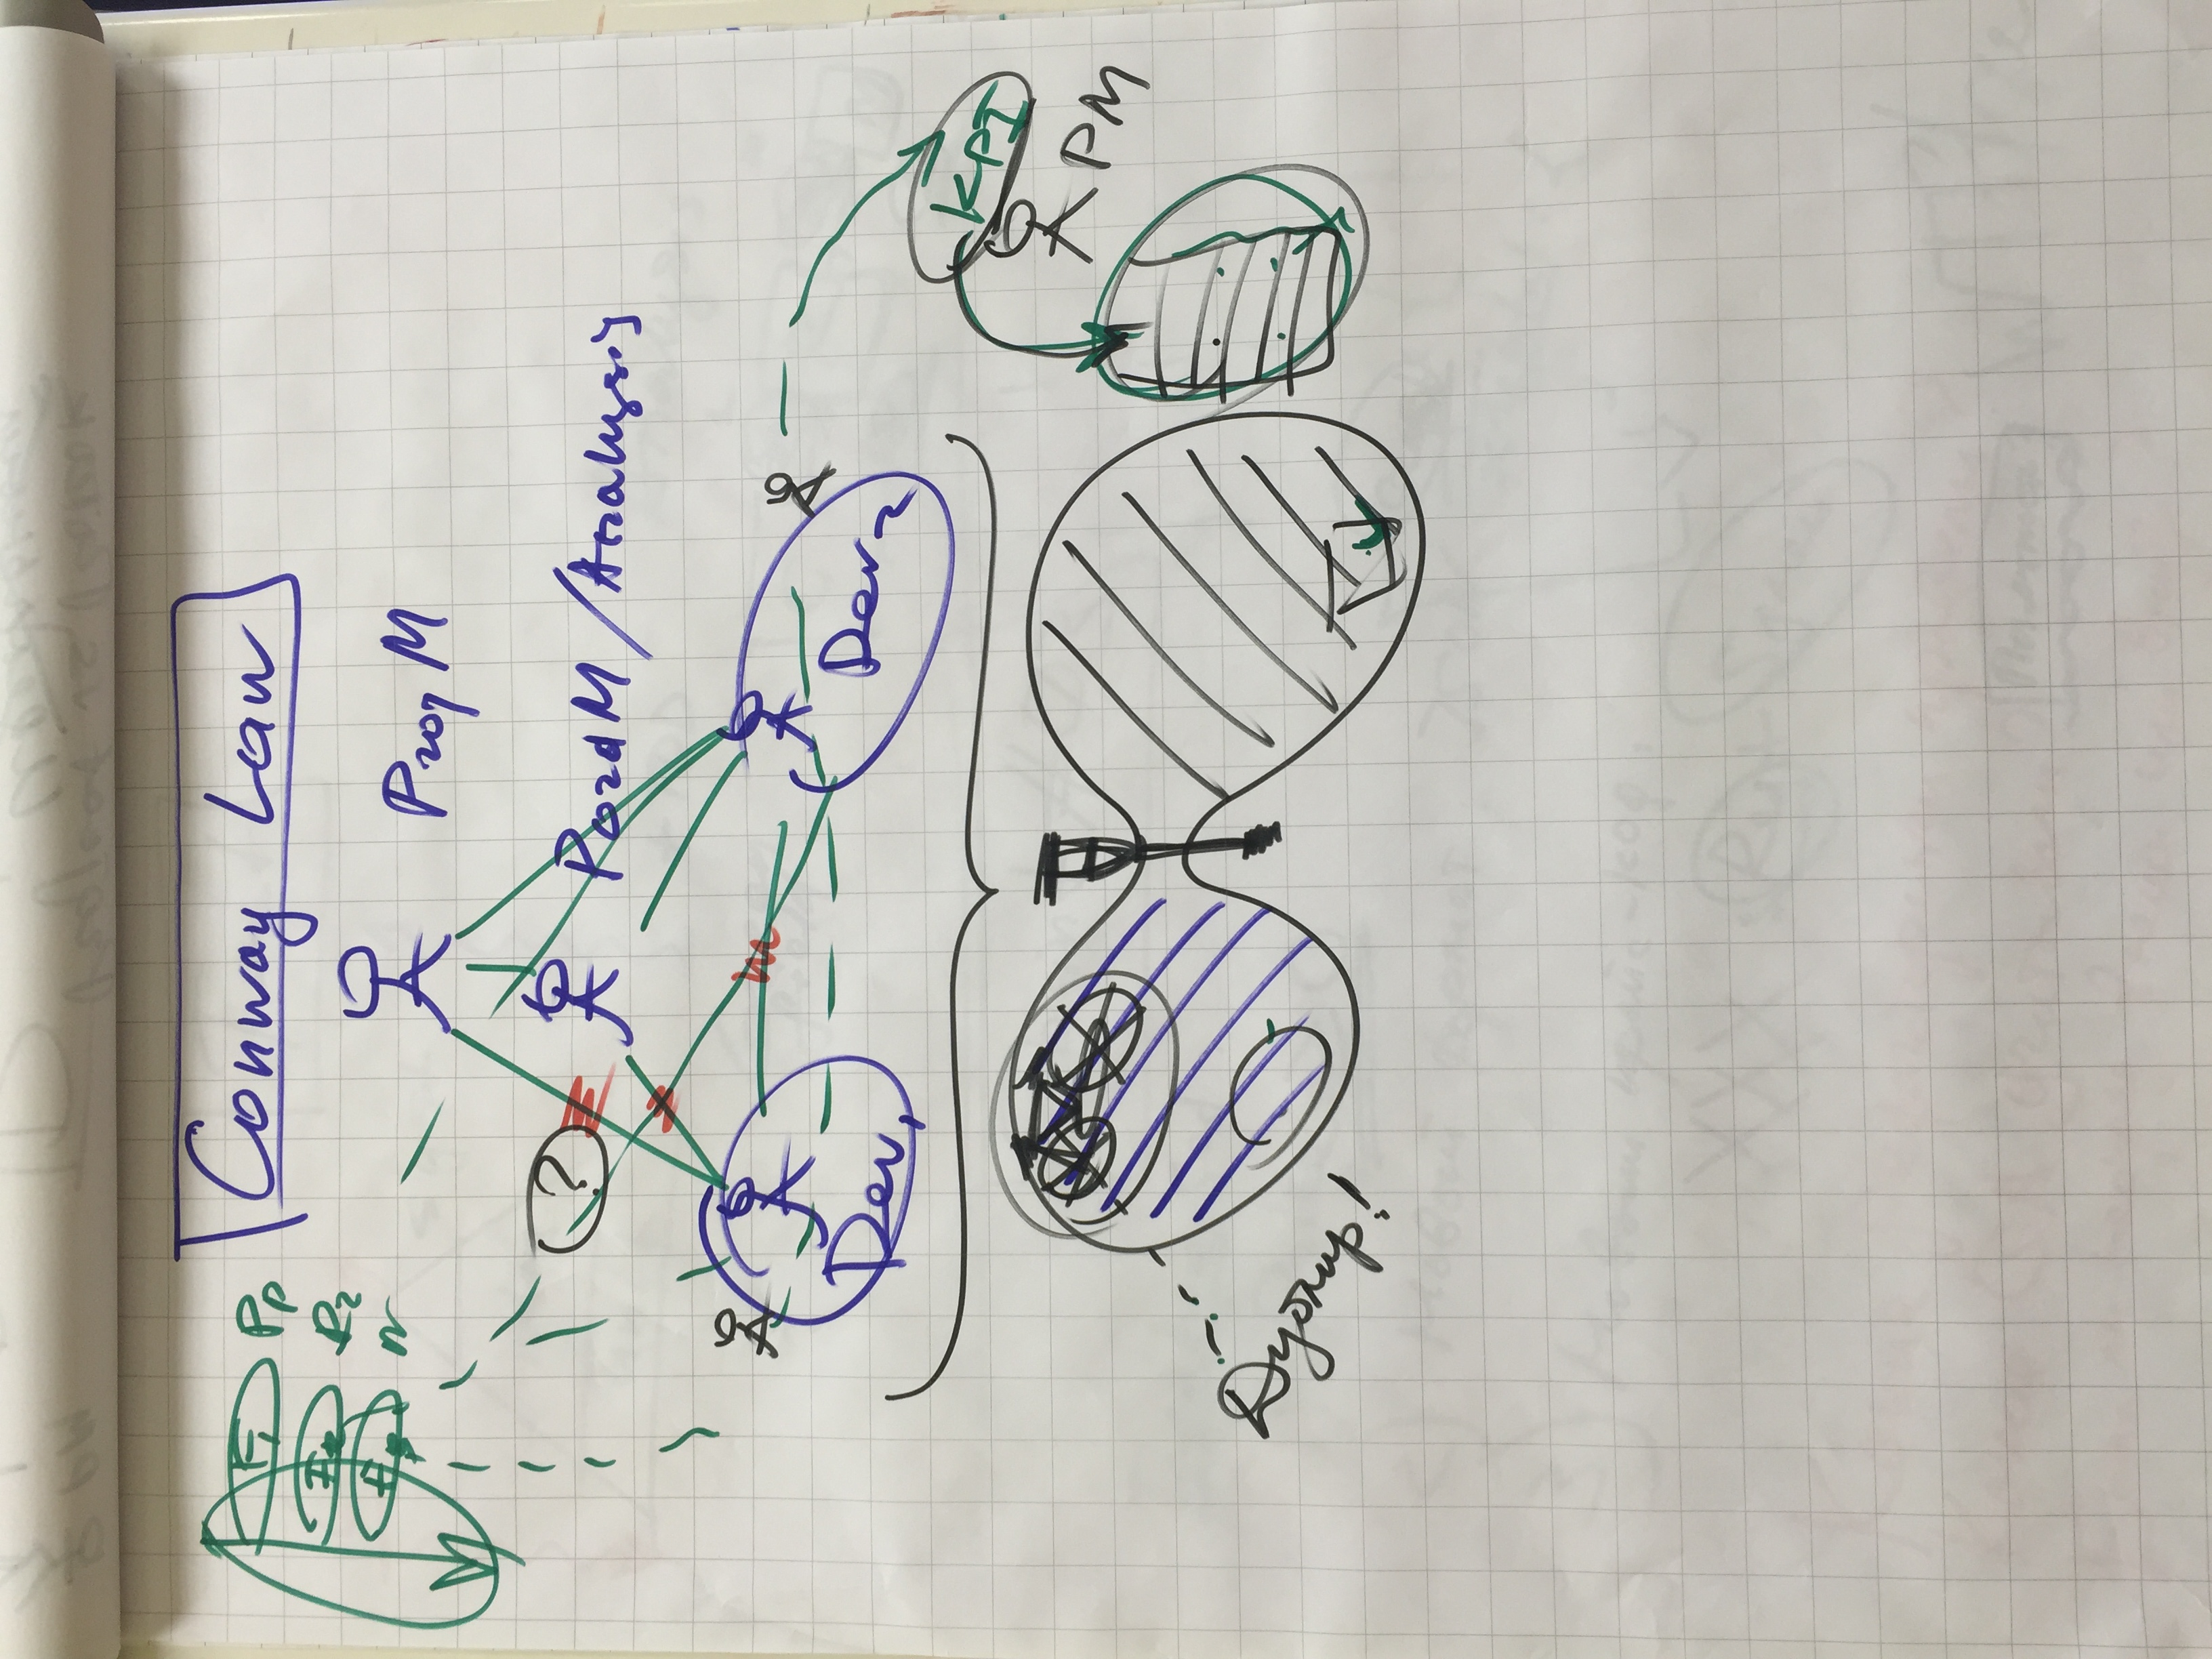 Conway Law
F1 Pp
F2 P2
F3
Proj M
?
ProdM / Analysis
Dev1
Dev2
KPI
PM
Дублир!